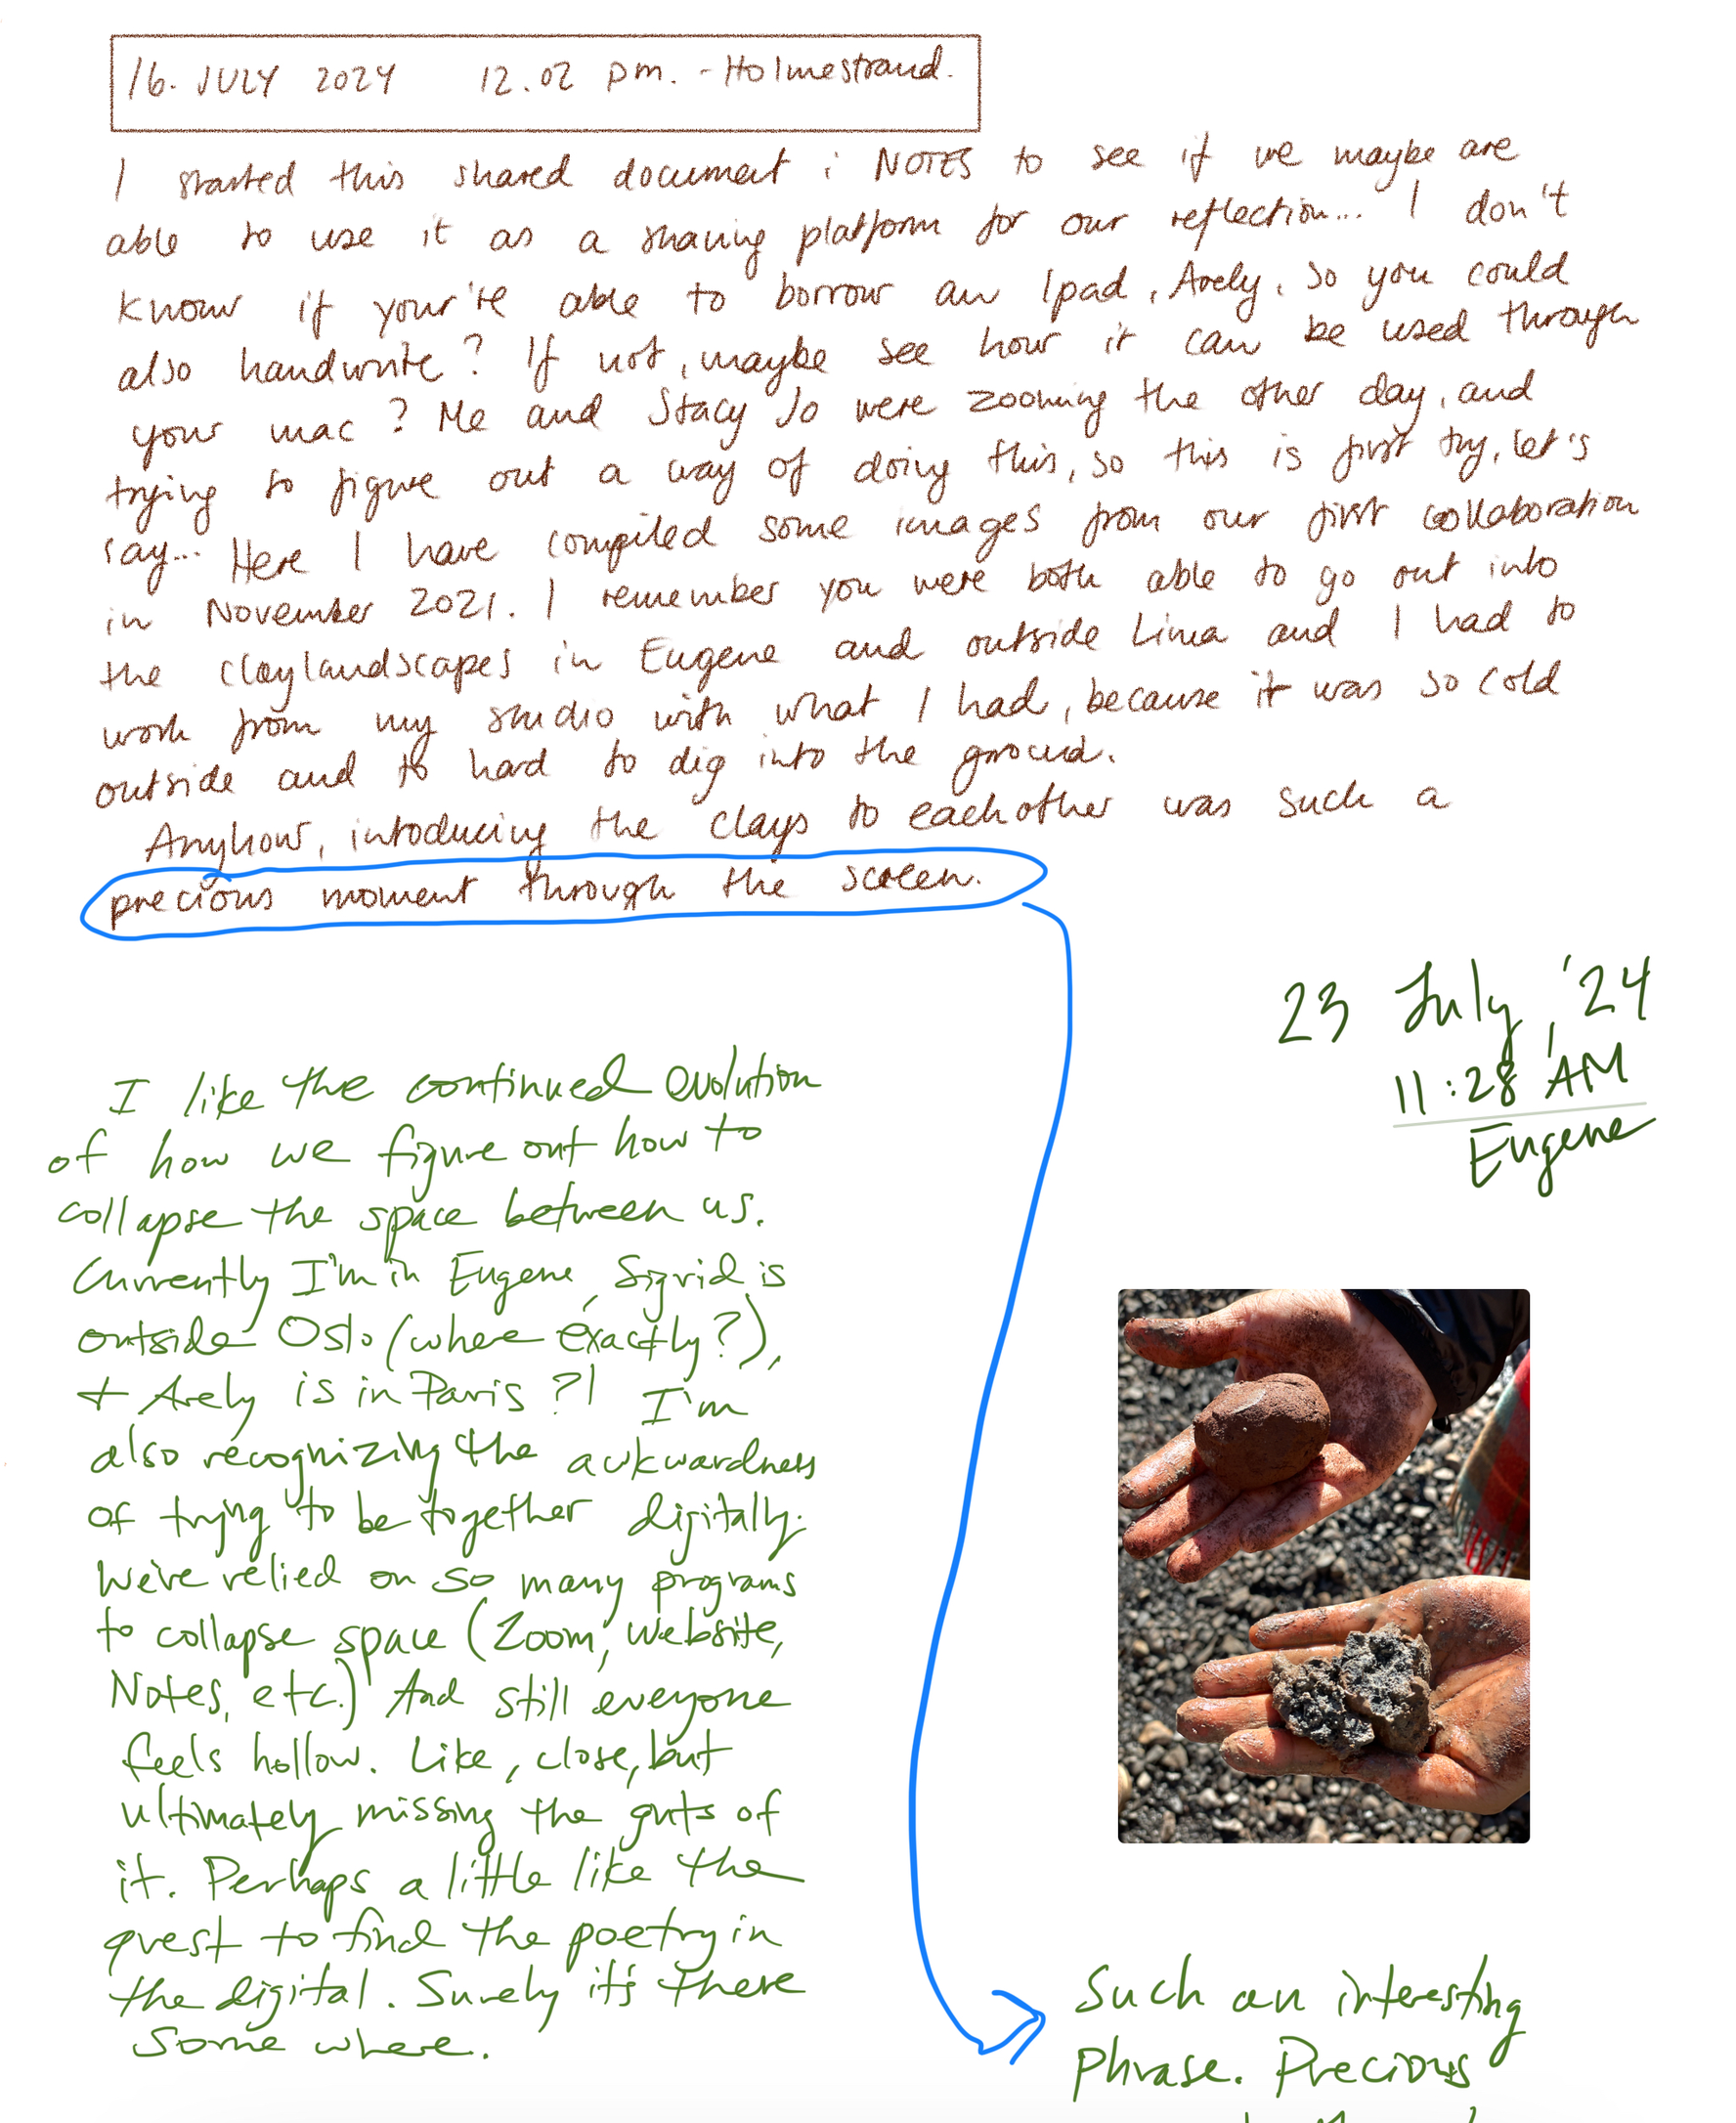 16. JULY 2024 12.02 pm. - Holmestrand.
I started this shared document i NOTES to see if we maybe are
able to use it as a sharing platform for our reflection... I don't
know if your're able to borrow an Ipad, Arely, so you could
also handwrite? If not, maybe see how it can be used through
your mac? Me and Stacy Jo were zooming the other day, and
trying to figure out a way of doing this, so this is first try, let's
say... Here I have compiled some images from our first collaboration
in November 2021. I remember you were both able to go out into
the claylandscapes in Eugene and outside Lima and I had to
work from my studio with what I had, because it was so cold
outside and to hard to dig into the ground.
Anyhow, introducing the clays to eachother was such a
precious moment through the screen.
23 July, '24
11:28 AM
Eugene
I like the continued evolution
of how we figure out how to
collapse the space between us.
Currently I'm in Eugene, Sigrid is
outside Oslo (where exactly?),
+ Arely is in Paris?! I'm
also recognizing the awkwardness
of trying to be together digitally.
We've relied on so many programs
to collapse space (Zoom, website,
Notes, etc.) And still everyone
feels hollow. Like, close, but
ultimately missing the guts of
it. Perhaps a little like the
quest to find the poetry in
the digital. Surely it's there
some where.
Such an interesting
phrase. Precious